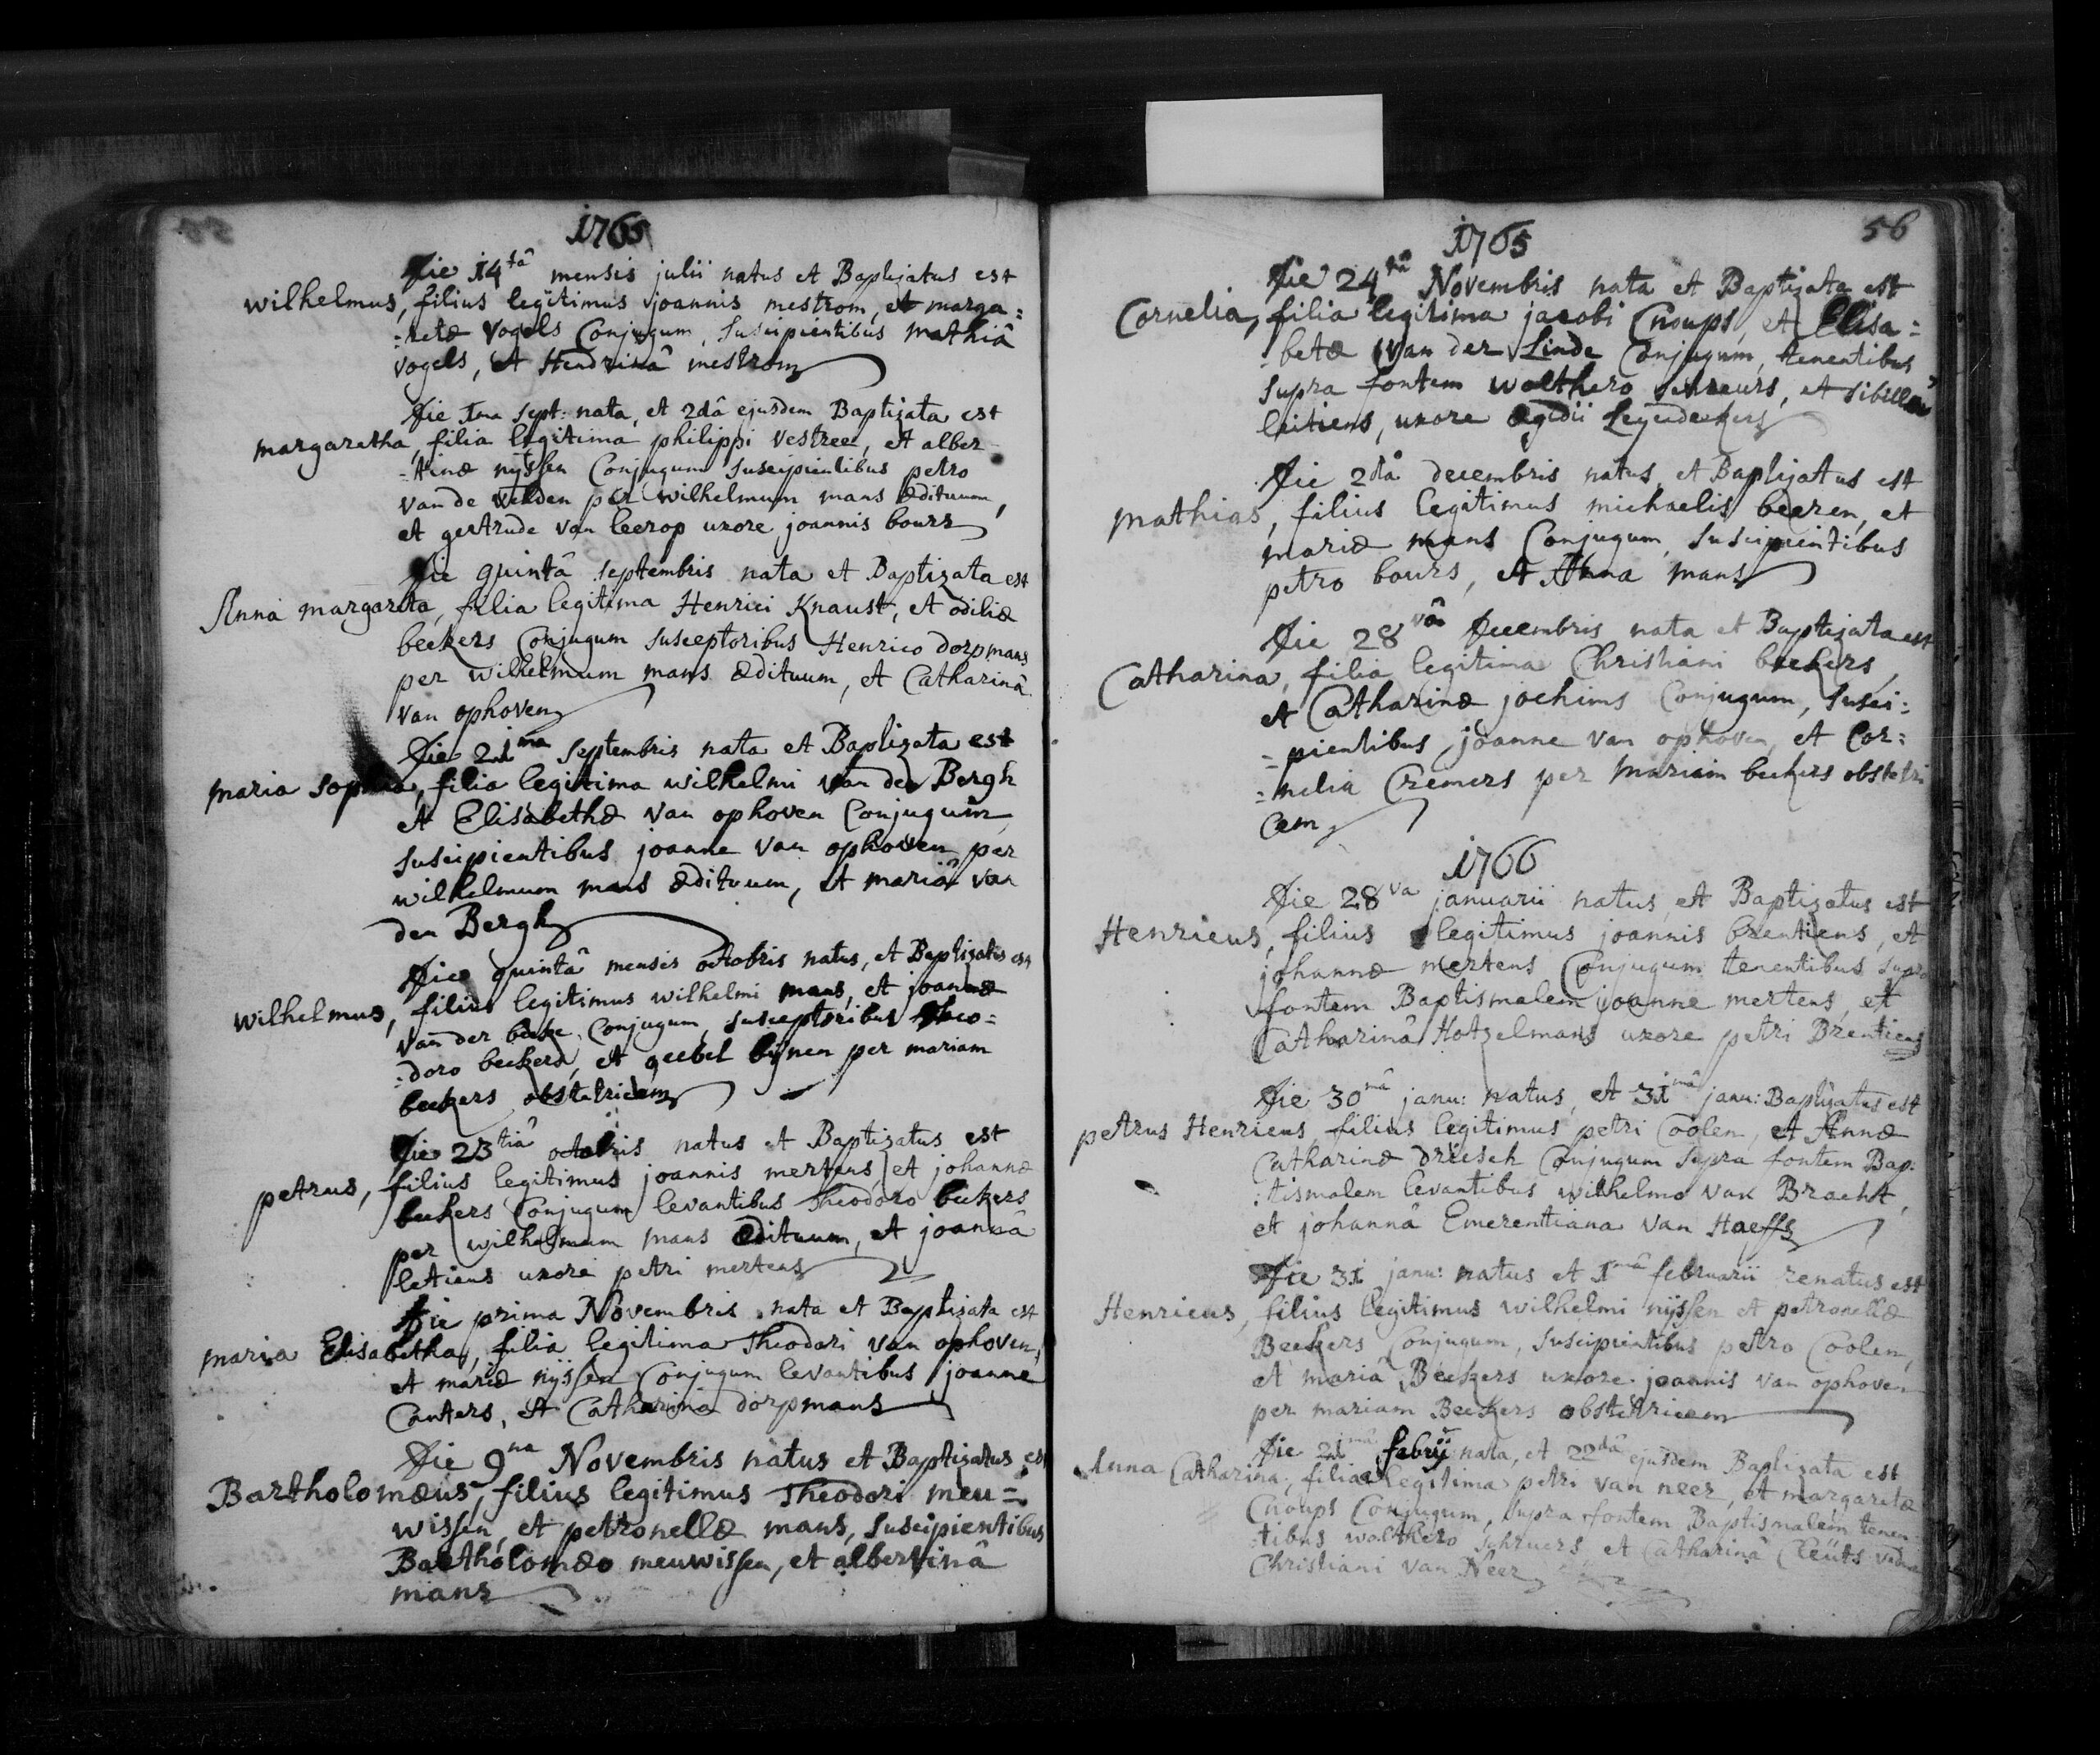 1765
Die 14tâ mensis julii natus et Baptizatus est
wilhelmus, filius legitimus joannis mestrom, et marga=
=retæ vogels Conjugum, suscipientibus mathiâ
vogels, et Hendrinâ mestrom
Die 1ma sept: nata, et 2dâ ejusdem Baptizata est
margaretha, filia legitima philippi vestree, et alber
=tinæ nijssen Conjugum suscipientibus petro
van de velden per wilhelmum mans ædituum,
et gertrude van leerop uxore joannis bours
Die quintâ septembris nata et Baptizata est
Anna margareta, filia legitima Henrici Knaust, et odiliæ
beckers Conjugum susceptoribus Henrico dorpmans
per wilhelmum mans ædituum, et Catharinâ
van ophoven
Die 21ma septembris nata et Baptizata est
maria sophia, filia legitima wilhelmi van den Bergh
et Elisabethæ van ophoven Conjugum,
suscipientibus joanne van ophoven per
wilhelmum mans ædituum, et mariâ van
den Bergh
Die quintâ mensis octobris natus, et Baptizatus est
wilhelmus, filius legitimus wilhelmi mans, et joannæ
van der beke Conjugum, susceptoribus Theo=
=doro beckers, et geebel bijnen per mariam
beckers obstetricem
Die 23tiâ octobris natus et Baptizatus est
petrus, filius legitimus joannis mertens, et johannæ
beckers Conjugum levantibus Theodoro beckers
per wilhelmum mans ædituum, et joannâ
letiens uxore petri mertens
Die prima Novembris nata et Baptizata est
maria Elisabetha, filia legitima Theodori van ophoven,
et mariæ nijssen Conjugum levantibus joanne
Canters, et Catharina dorpmans
Die 9na Novembris natus et Baptizatus est
Bartholomæus, filius legitimus Theodori meu=
wissen, et petronellæ mans, suscipientibus
Bartholomæo meuwissen, et albertinâ
mans
56
1765
Die 24tâ Novembris nata et Baptizata est
Cornelia, filia legitima jacobi Cnoups, et Elisa=
betæ van der Linde Conjugum, tenentibus
supra fontem walthero schreurs, et sibillâ
leitiens, uxore ægidii
Die 2dâ decembris natus et Baptizatus est
mathias, filius legitimus michaelis beeren, et
mariæ mans Conjugum, suscipientibus
petro bours, et Anna mans
Die 28vâ Decembris nata et Baptizata est
Catharina, filia legitima Christiani beckers,
et Catharinæ jochims Conjugum, susci=
=pientibus joanne van ophoven, et Cor=
=nelia Cremers per mariam beckers obstetri
cem
1766
Die 28va januarii natus et Baptizatus est
Henricus, filius legitimus joannis brentiens, et
johannæ mertens Conjugum tenentibus supra
fontem Baptismalem joanne mertens, et
Catharinâ Hotzelmans uxore petri Brentiens
Die 30mâ janu: natus, et 31mâ janu: Baptizatus est
petrus Henricus filius legitimus petri Coolen, et Annæ
Catharinæ driesch Conjugum supra fontem Bap:
:tismalem levantibus wilhelmo van Bracht,
et johannâ Emerentiana van Haeffs
Die 31 janu: natus et 1mâ februarii renatus est
Henricus, filius legitimus wilhelmi nijssen et petronellæ
Beckers Conjugum, suscipientibus petro Coolen,
et mariâ Beckers uxore joannis van ophoven
per mariam Beckers obstetricem
Die 21mâ febrij nata, et 22dâ ejusdem Baptizata est
Anna Catharina, filia legitima petri van neer, et margaretæ
Cnoups Conjugum, supra fontem Baptismalem tenen
=tibus walthero schruers et Catharinâ Cleüts vidua
Christiani van Neer